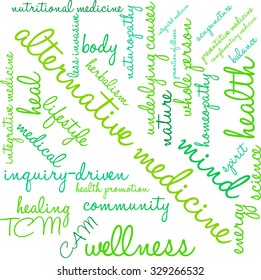 nutritional medicine
less invasive
naturopathy
underlying causes
whole person
acupuncture
preventative medicine
complementary medicine
balance
body
herbalism
integrative medicine
heal
alternative medicine
lifestyle
medical
nature
homeopathy
health
mind
spirit
inquiry-driven
health promotion
energy science
healing
community
TCM
CAM
wellness
www.shutterstock.com · 329266532